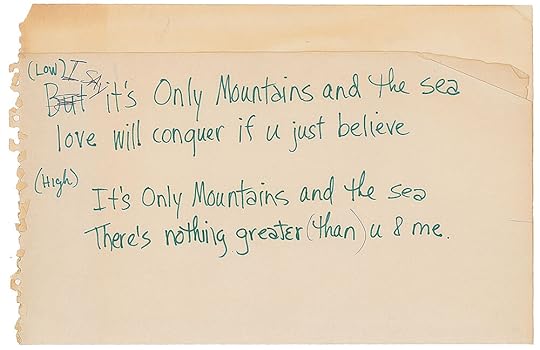 (Low) I say
But it's Only Mountains and the sea
love will conquer if u just believe
(High)
It's Only Mountains and the sea
There's nothing greater (than) u & me.